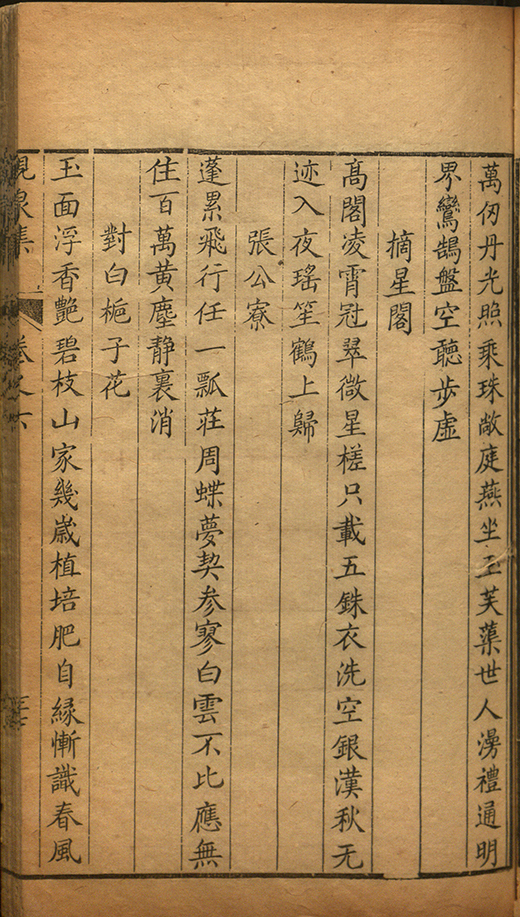 萬仞丹光照乘珠敞庭燕坐玉芙蕖世人漫禮通明
界鸞鵠盤空聽步虛
摘星閣
髙閣凌霄冠翠微星槎只載五銖衣洗空銀漢秋无
迹入夜瑤笙鶴上歸
張公寮
蓬累飛行任一瓢莊周蝶夢契参寥白雲不比應無
住百萬黄塵静裏消
對白梔子花
玉面浮香艶碧枝山家幾歲植培肥自縁慚識春風
峴泉集
卷之六